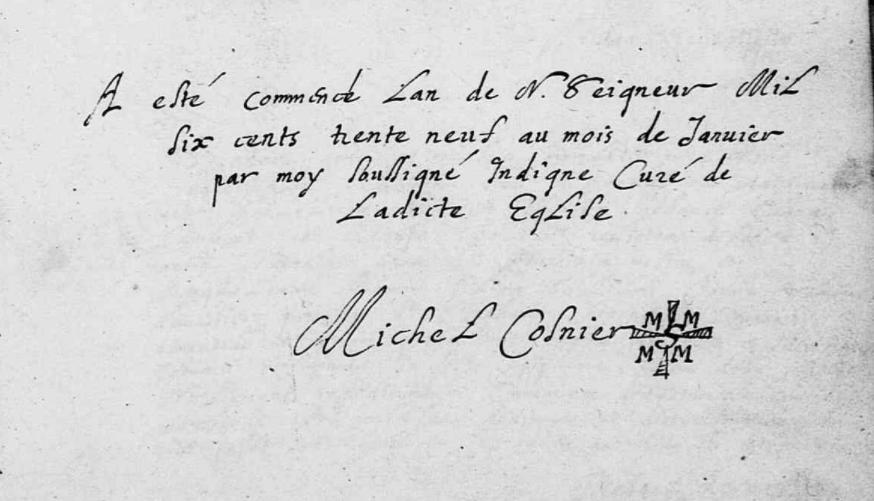 A esté commencé Lan de N. Seigneur MiL
six cents trente neuf au mois de Januier
par moy soussigné Indigne Curé de
Ladicte EgLise.
MicheL Cosnier
M M
M M